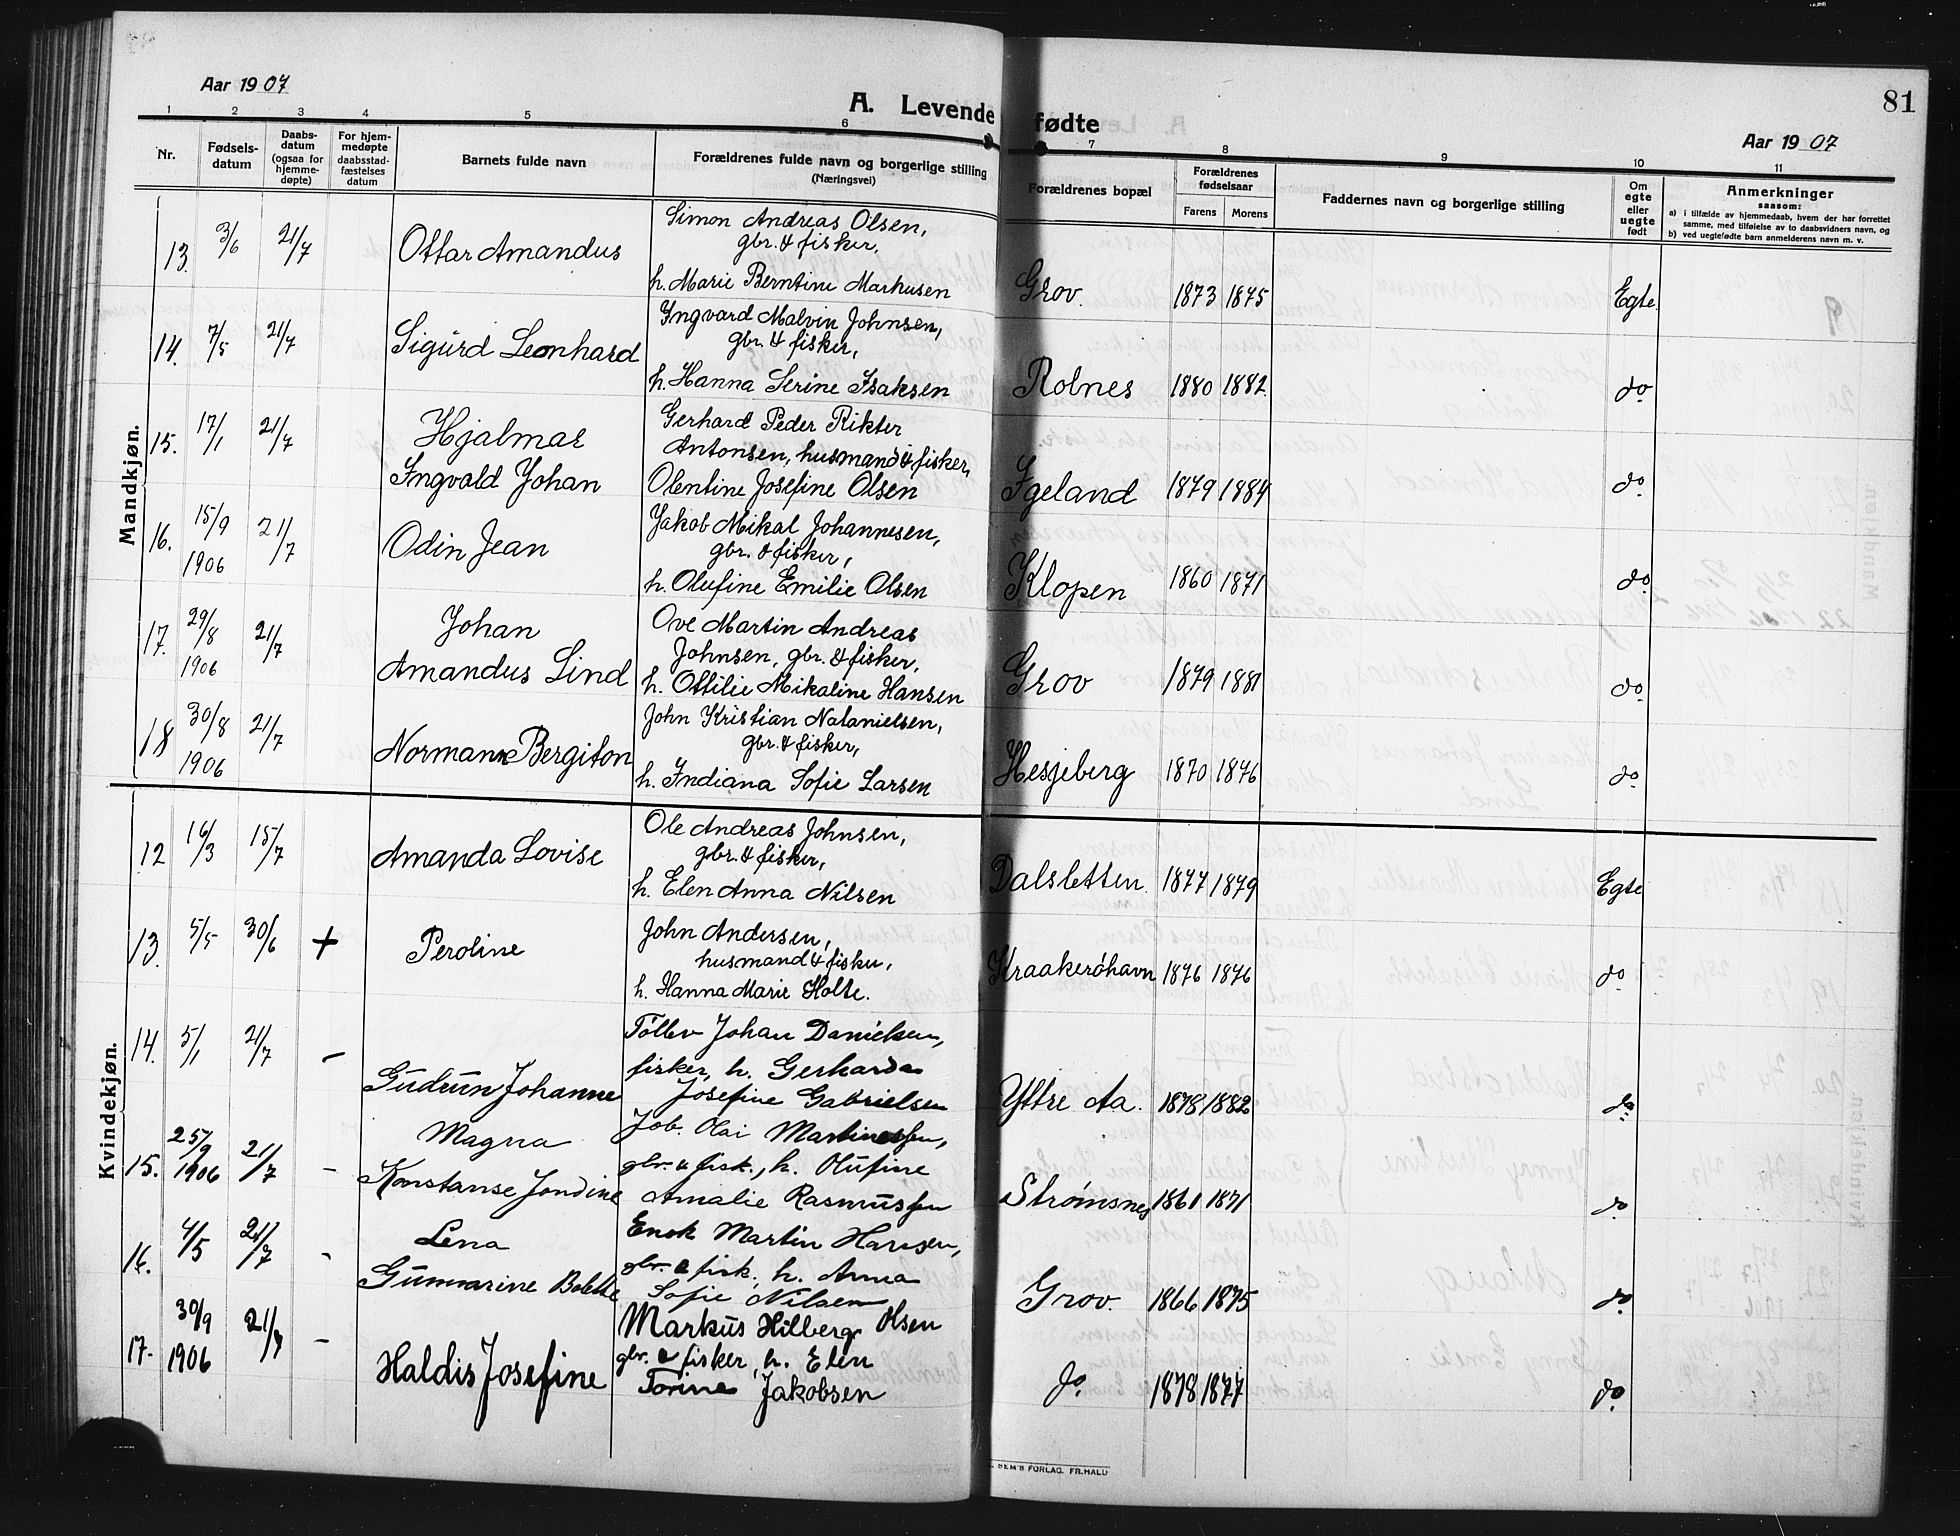 81
Aar 1907
A. Levende fødte
Aar 1907
1 2 3 4 5 6 7 8 9 10 11
Nr.
Fødsels-
datum
Daabs-
datum
(ogsaa for
hjemme-
døpte)
For hjem-
medøpte
daabsstad-
fæstelses
datum
Barnets fulde navn
Forældrenes fulde navn og borgerlige stilling
(Næringsvei)
Forældrenes bopæl
Forældrenes
fødselsaar
Farens Morens
Faddernes navn og borgerlige stilling
Om
egte
eller
uegte
født
Anmerkninger
saasom:
a) i tilfælde av hjemmedaab, hvem der har forrettet
samme, med tilføielse av to daabsvidners navn, og
b) ved uegtefødte barn anmelderens navn m. v.
Mandkjøn.
13. 3/6 21/7 Ottar Amandus
Simon Andreas Olsen,
gbr. & fisker,
h. Marie Berntine Markusen
Grov. 1873 1875 Egte
14. 7/5 21/7 Sigurd Leonhard
Yngvard Malvin Johnsen,
gbr. & fisker,
h. Hanna Serine Isaksen
Rolnes 1880 1882 do
15. 17/1 21/7 Hjalmar
Ingvald Johan
Gerhard Peder Rikter
Antonsen, husmand & fisker,
Olentine Josefine Olsen
Igeland 1879 1884 do
16. 15/9 1906 21/7 Odin Jean
Jakob Mikal Johannesen,
gbr. & fisker,
h. Olufine Emilie Olsen
Klopen 1860 1871 do
17. 29/8 1906 21/7 Johan
Amandus Lind
Ove Martin Andreas
Johnsen, gbr. & fisker,
h. Ottilie Mikaline Hansen
Grov 1879 1881 do
18 30/8 1906 21/7 Normann Bergiton
John Kristian Natanielsen,
gbr. & fisker,
h. Indiana Sofie Larsen
Hesjeberg 1870 1876 do
Kvindekjøn.
12 16/3 15/7 Amanda Lovise
Ole Andreas Johnsen,
gbr. & fisker,
h. Elen Anna Nilsen
Dalsletten 1877 1879 Egte
13. 5/5 30/6 + Peroline
John Andersen,
husmand & fisker,
h. Hanna Marie Holte.
Kraakerøhavn 1876 1876 do
14. 5/1 21/7 - Gudrun Johanne
Tollev Johan Danielsen,
fisker, h. Gerharda
Josefine Gabrielsen
Yttre Aa. 1878 1882 do
15. 25/9 1906 21/7 - Magna
Konstanse Jondine
Job. Olai Martinessen,
gbr. & fisk., h. Olufine
Amalie Rasmussen
Strømsnes 1861 1871 do
16. 4/5 21/7 - Lena
Gunnarine Bolette
Enok Martin Hansen,
gbr. & fisk., h. Anna
Sofie Nilsen
Grov. 1866 1875 do
17. 30/9 1906 21/7 - Haldis Josefine
Markus Hilberg Olsen
gbr. & fisker, h. Elen
Torine Jakobsen
do. 1878 1877 do
SEM'S FORLAG, FR.HALD